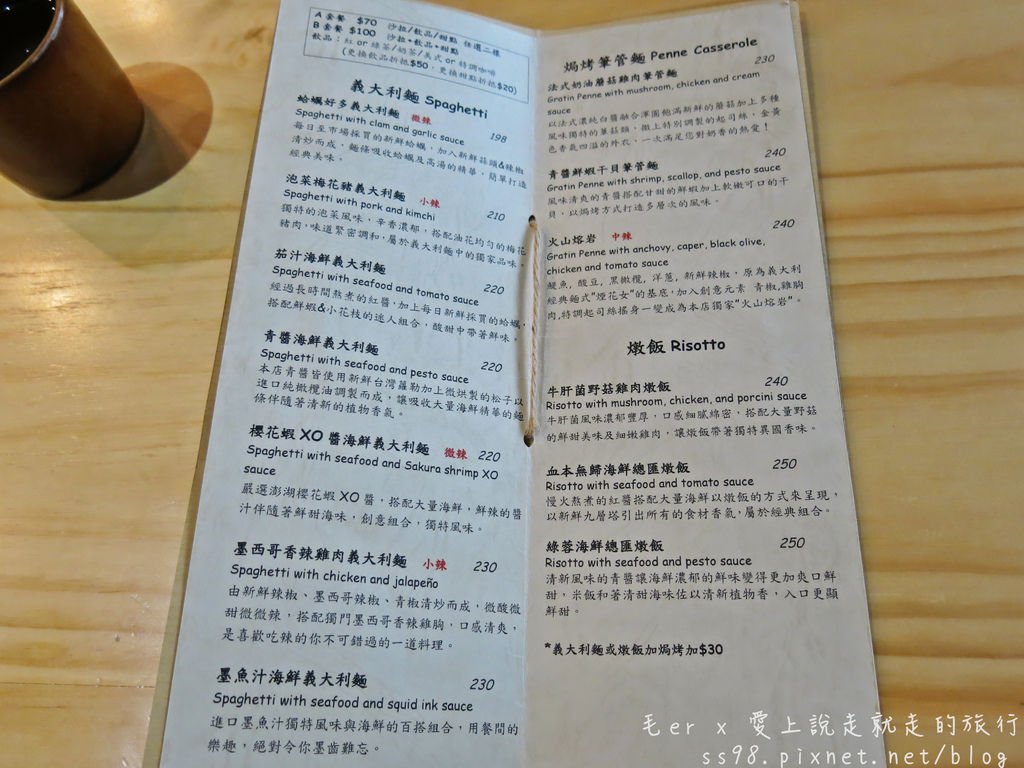 A 套餐 $70 沙拉/飲品/甜點 任選二樣
B 套餐 $100 沙拉+飲品+甜點
飲品：紅 or 綠茶/奶茶/美式 or 特調咖啡
(更換飲品折抵$50，更換甜點折抵$20)
義大利麵 Spaghetti
蛤蠣好多義大利麵 微辣
Spaghetti with clam and garlic sauce 198
每日至市場採買的新鮮蛤蠣，加入新鮮蒜頭&辣椒
清炒而成，麵條吸收蛤蠣及高湯的精華，簡單打造
經典美味。
泡菜梅花豬義大利麵 小辣
Spaghetti with pork and kimchi 210
獨特的泡菜風味，辛香濃郁，搭配油花均勻的梅花
豬肉，味道緊密調和，屬於義大利麵中的獨家品味。
茄汁海鮮義大利麵
Spaghetti with seafood and tomato sauce 220
經過長時間熬煮的紅醬，加上每日新鮮採買的蛤蠣，
搭配鮮蝦&小花枝的迷人組合，酸甜中帶著鮮味。
青醬海鮮義大利麵
Spaghetti with seafood and pesto sauce 220
本店青醬皆使用新鮮台灣羅勒加上微烘製的松子以
進口純橄欖油調製而成，讓吸收大量海鮮精華的麵
條伴隨著清新的植物香氣。
櫻花蝦 XO 醬海鮮義大利麵 微辣 220
Spaghetti with seafood and Sakura shrimp XO
sauce
嚴選澎湖櫻花蝦 XO 醬，搭配大量海鮮，鮮辣的醬
汁伴隨著鮮甜海味，創意組合，獨特風味。
墨西哥香辣雞肉義大利麵 小辣 230
Spaghetti with chicken and jalapeño
由新鮮辣椒、墨西哥辣椒、青椒清炒而成，微酸微
甜微微辣，搭配獨門墨西哥香辣雞胸，口感清爽，
是喜歡吃辣的你不可錯過的一道料理。
墨魚汁海鮮義大利麵 230
Spaghetti with seafood and squid ink sauce
進口墨魚汁獨特風味與海鮮的百搭組合，用餐間的
樂趣，絕對令你墨齒難忘。
焗烤筆管麵 Penne Casserole
法式奶油蘑菇雞肉筆管麵 230
Gratin Penne with mushroom, chicken and cream
sauce
以法式濃純白醬融合渾圓飽滿新鮮的蘑菇加上多種
風味獨特的菓菇類，撒上特別調製的起司絲，金黃
色香氣四溢的外衣，一次滿足您對奶香的熱愛！
青醬鮮蝦干貝筆管麵 240
Gratin Penne with shrimp, scallop, and pesto sauce
風味清爽的青醬搭配甘甜的鮮蝦加上軟嫩可口的干
貝，以焗烤方式打造多層次的風味。
火山熔岩 中辣 240
Gratin Penne with anchovy, caper, black olive,
chicken and tomato sauce
鯷魚, 酸豆, 黑橄欖, 洋蔥, 新鮮辣椒，原為義大利
經典麵式"煙花女"的基底，加入創意元素 青椒,雞胸
肉,特調起司絲搖身一變成為本店獨家"火山熔岩"。
燉飯 Risotto
牛肝菌野菇雞肉燉飯 240
Risotto with mushroom, chicken, and porcini sauce
牛肝菌風味濃郁豐厚，口感細膩綿密，搭配大量野菇
的鮮甜美味及細嫩雞肉，讓燉飯帶著獨特異國香味。
血本無歸海鮮總匯燉飯 250
Risotto with seafood and tomato sauce
慢火熬煮的紅醬搭配大量海鮮以燉飯的方式來呈現，
以新鮮九層塔引出所有的食材香氣,屬於經典組合。
綠蓉海鮮總匯燉飯 250
Risotto with seafood and pesto sauce
清新風味的青醬讓海鮮濃郁的鮮味變得更加爽口鮮
甜，米飯和著清甜海味佐以清新植物香，入口更顯
鮮甜。
*義大利麵或燉飯加焗烤加$30
毛er x 愛上說走就走的旅行
ss98.pixnet.net/blog